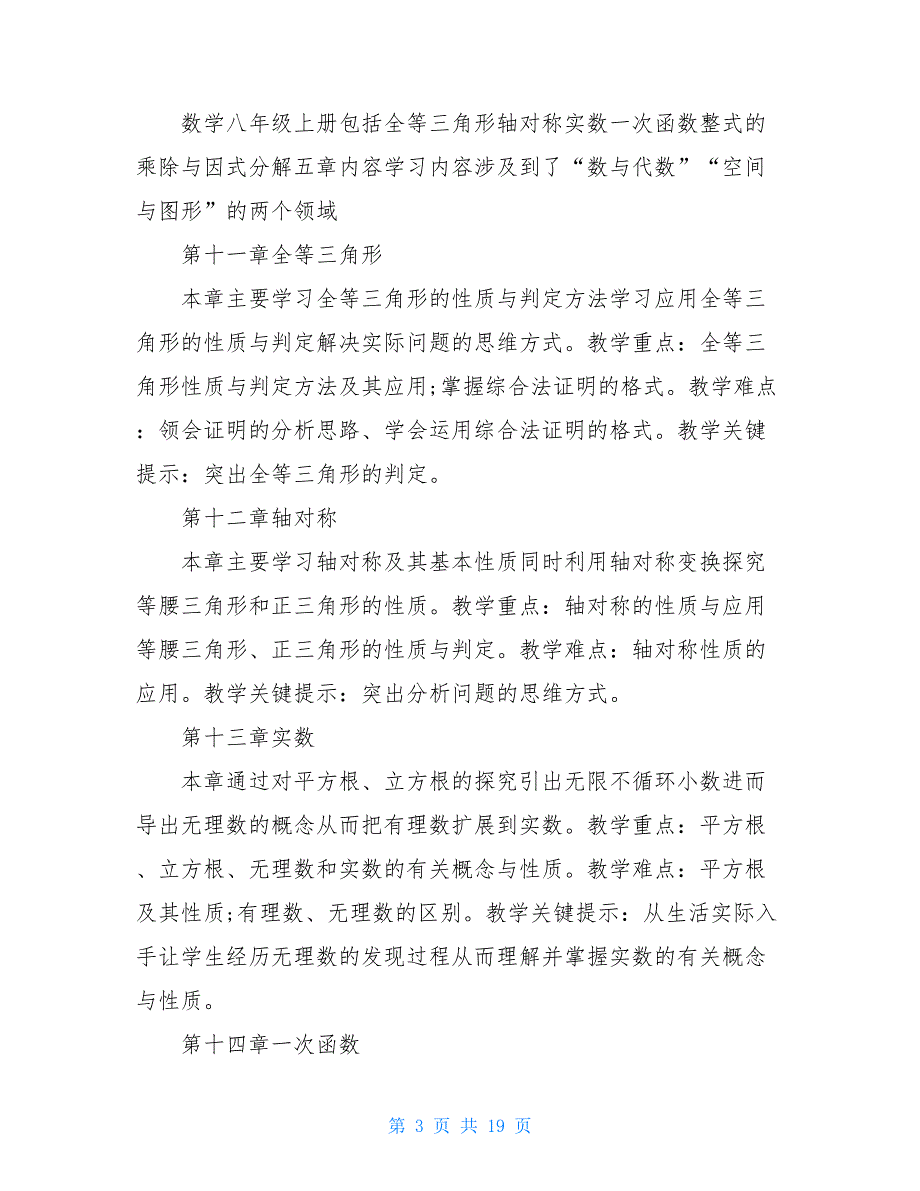 数学八年级上册包括全等三角形轴对称实数一次函数整式的
乘除与因式分解五章内容学习内容涉及到了“数与代数”“空间
与图形”的两个领域
第十一章全等三角形
本章主要学习全等三角形的性质与判定方法学习应用全等三
角形的性质与判定解决实际问题的思维方式。教学重点：全等三
角形性质与判定方法及其应用;掌握综合法证明的格式。教学难点
：领会证明的分析思路、学会运用综合法证明的格式。教学关键
提示：突出全等三角形的判定。
第十二章轴对称
本章主要学习轴对称及其基本性质同时利用轴对称变换探究
等腰三角形和正三角形的性质。教学重点：轴对称的性质与应用
等腰三角形、正三角形的性质与判定。教学难点：轴对称性质的
应用。教学关键提示：突出分析问题的思维方式。
第十三章实数
本章通过对平方根、立方根的探究引出无限不循环小数进而
导出无理数的概念从而把有理数扩展到实数。教学重点：平方根
、立方根、无理数和实数的有关概念与性质。教学难点：平方根
及其性质;有理数、无理数的区别。教学关键提示：从生活实际入
手让学生经历无理数的发现过程从而理解并掌握实数的有关概念
与性质。
第十四章一次函数
第 3 页 共 19 页